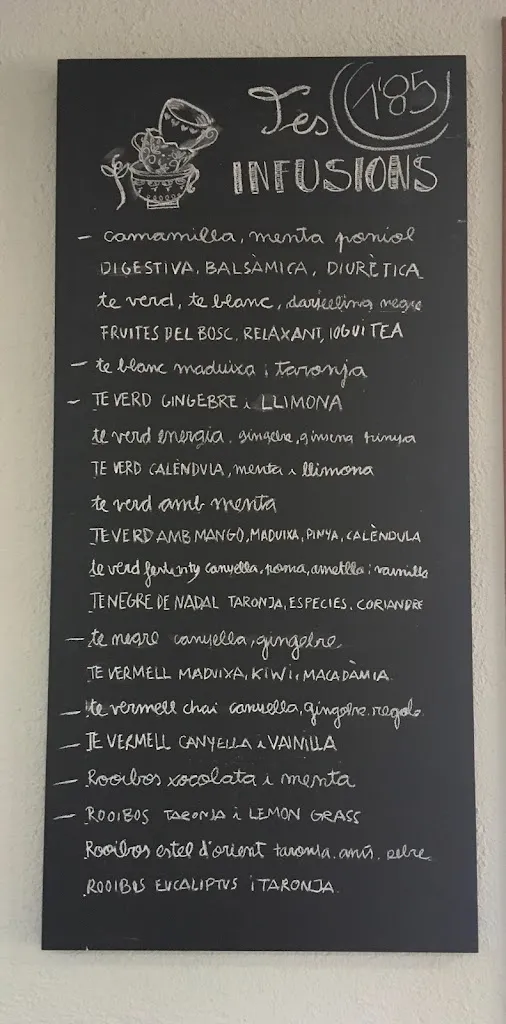 Tes 1'85
INFUSIONS
- camamilla, menta poniol
DIGESTIVA, BALSÀMICA, DIURÈTICA
te verd, te blanc, darjeeling negre
FRUITES DEL BOSC, RELAXANT, IOGUI TEA
- te blanc maduixa i taronja
- TE VERD GINGEBRE i LLIMONA
te verd energia, gingebre, ginseng pinya
TE VERD CALÈNDULA, menta i llimona
te verd amb menta
TE VERD AMB MANGO, MADUIXA, PINYA, CALÈNDULA
te verd canyella, poma, ametlla i vainilla
TE NEGRE DE NADAL TARONJA, ESPECIES, CORIANDRE
- te negre canyella, gingebre
TE VERMELL MADUIXA, KIWI, MACADÀMIA
- te vermell chai canyella, gingebre, regalè
- TE VERMELL CANYELLA i VAINILLA
- Rooibos xocolata i menta
- ROOIBOS TARONJA i LEMON GRASS
Rooibos estel d'orient taronja, anís, pebre
ROOIBOS EUCALIPTUS i TARONJA